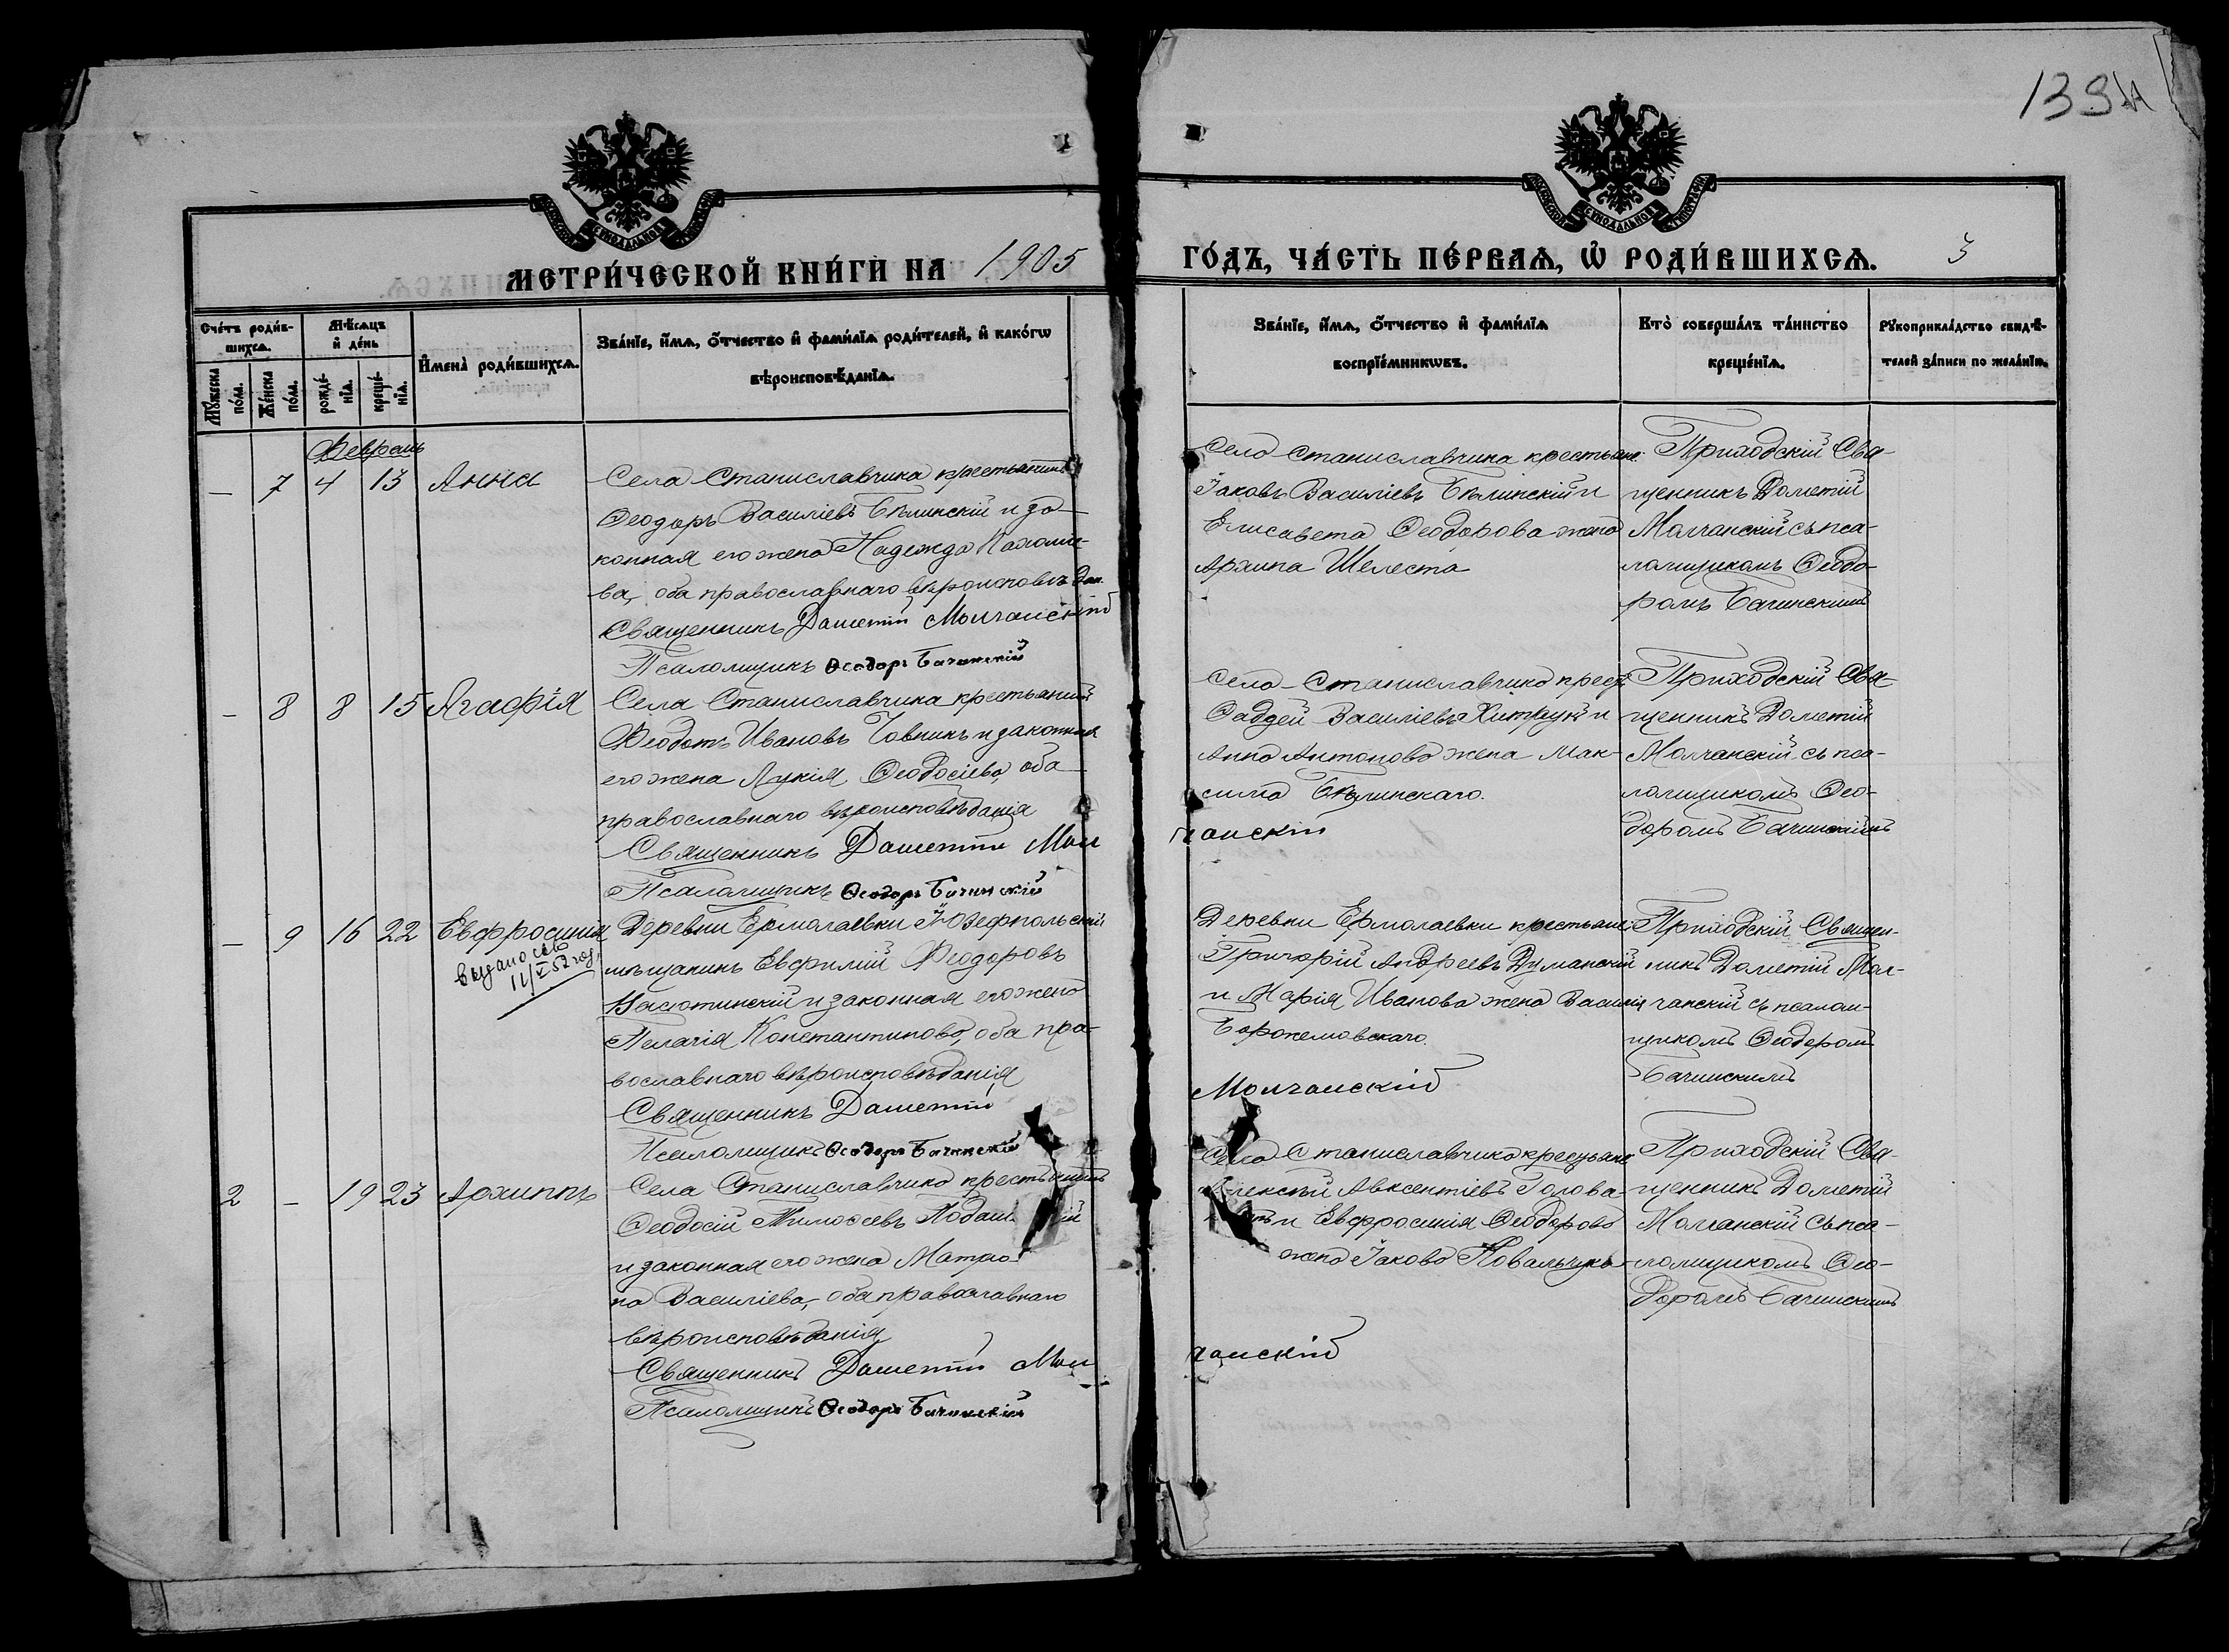 139
МЕТРИ́ЧЕСКОЙ КНИ́ГИ НА 1905
ГО́ДЪ, ЧА́СТЬ ПЕ́РВАѦ, Ѽ РОДИ́ВШИХСѦ. 3
Сче́тъ роди́вшихсѧ.
Мꙋ́жеска по́ла.
Же́нска по́ла.
Мѣ́сѧцъ и҆ де́нь
рожде́нїѧ.
креще́нїѧ.
И҆мена̀ роди́вшихсѧ.
Зва́нїе, и҆́мѧ, ѻ҆́тчество и҆ фами́лїѧ роди́телей, и҆ како́гѡ
вѣроисповѣ́данїѧ.
Зва́нїе, и҆́мѧ, ѻ҆́тчество и҆ фами́лїѧ
воспрїе́мникѡвъ.
Кто̀ соверша́лъ та́инство
креще́нїѧ.
Рꙋкоприкла́дство свидѣ́-
телей за́писи по жела́нїю.
Февраль
— 7 4 13 Анна
Села Станиславчика крестьянинъ
Ѳеодоръ Василіевъ Бѣлинскій и за-
конная его жена Надежда
ва, оба православнаго вѣроисповѣдан.
Священникъ Дометій Молчанскій
Псаломщикъ Ѳеодоръ Бачинскій
Села Станиславчика крестьяне:
Іаковъ Василіевъ Бѣлинскій и
Елисавета Ѳеодорова жена
Архипа Шелеста
Приходскій Свя-
щенникъ Дометій
Молчанскій съ пса-
ломщикомъ Ѳеодо-
ромъ Бачинскимъ
— 8 8 15 Агафія
Села Станиславчика крестьянинъ
Ѳеодотъ Ивановъ Човникъ и законная
его жена Лукія Ѳеодосіева, оба
православнаго вѣроисповѣданія
Священникъ Дометій Мол
чанскій
Псаломщикъ Ѳеодоръ Бачинскій
Села Станиславчика крест.
Ѳаддей Василіевъ Хитрукъ и
Анна Антонова жена Мак-
сима Бѣлинскаго.
Приходскій Свя-
щенникъ Дометій
Молчанскій съ пса-
ломщикомъ Ѳео-
доромъ Бачинскимъ
— 9 16 22 Евфросинія
выдано св
11/V 52 год
Деревни Ермолаевки Юзефпольскій
мѣщанинъ Евфимій Ѳеодоровъ
Васютинскій и законная его жена
Пелагія Константинова, оба пра-
вославнаго вѣроисповѣданія
Священникъ Дометій
Молчанскій
Псаломщикъ Ѳеодоръ Бачинскій
Деревни Ермолаевки крестьяне:
Григорій Андреевъ Думанскій
и Марія Иванова жена Василія
Приходскій Священ-
никъ Дометій Мол-
чанскій съ псалом-
щикомъ Ѳеодоромъ
Бачинскимъ
2 — 19 23 Архиппъ
Села Станиславчика крестьянинъ
Ѳеодосій Тимоѳеевъ
и законная его жена Матро-
на Василіева, оба православнаго
вѣроисповѣданія
Священникъ Дометій Мол
чанскій
Псаломщикъ Ѳеодоръ Бачинскій
Села Станиславчика крестьяне
Алексѣй Авксентіевъ Голова-
и Евфросинія Ѳеодорова
жена Іакова Ковальчука
Приходскій Свя-
щенникъ Дометій
Молчанскій съ пса-
ломщикомъ Ѳео-
доромъ Бачинскимъ